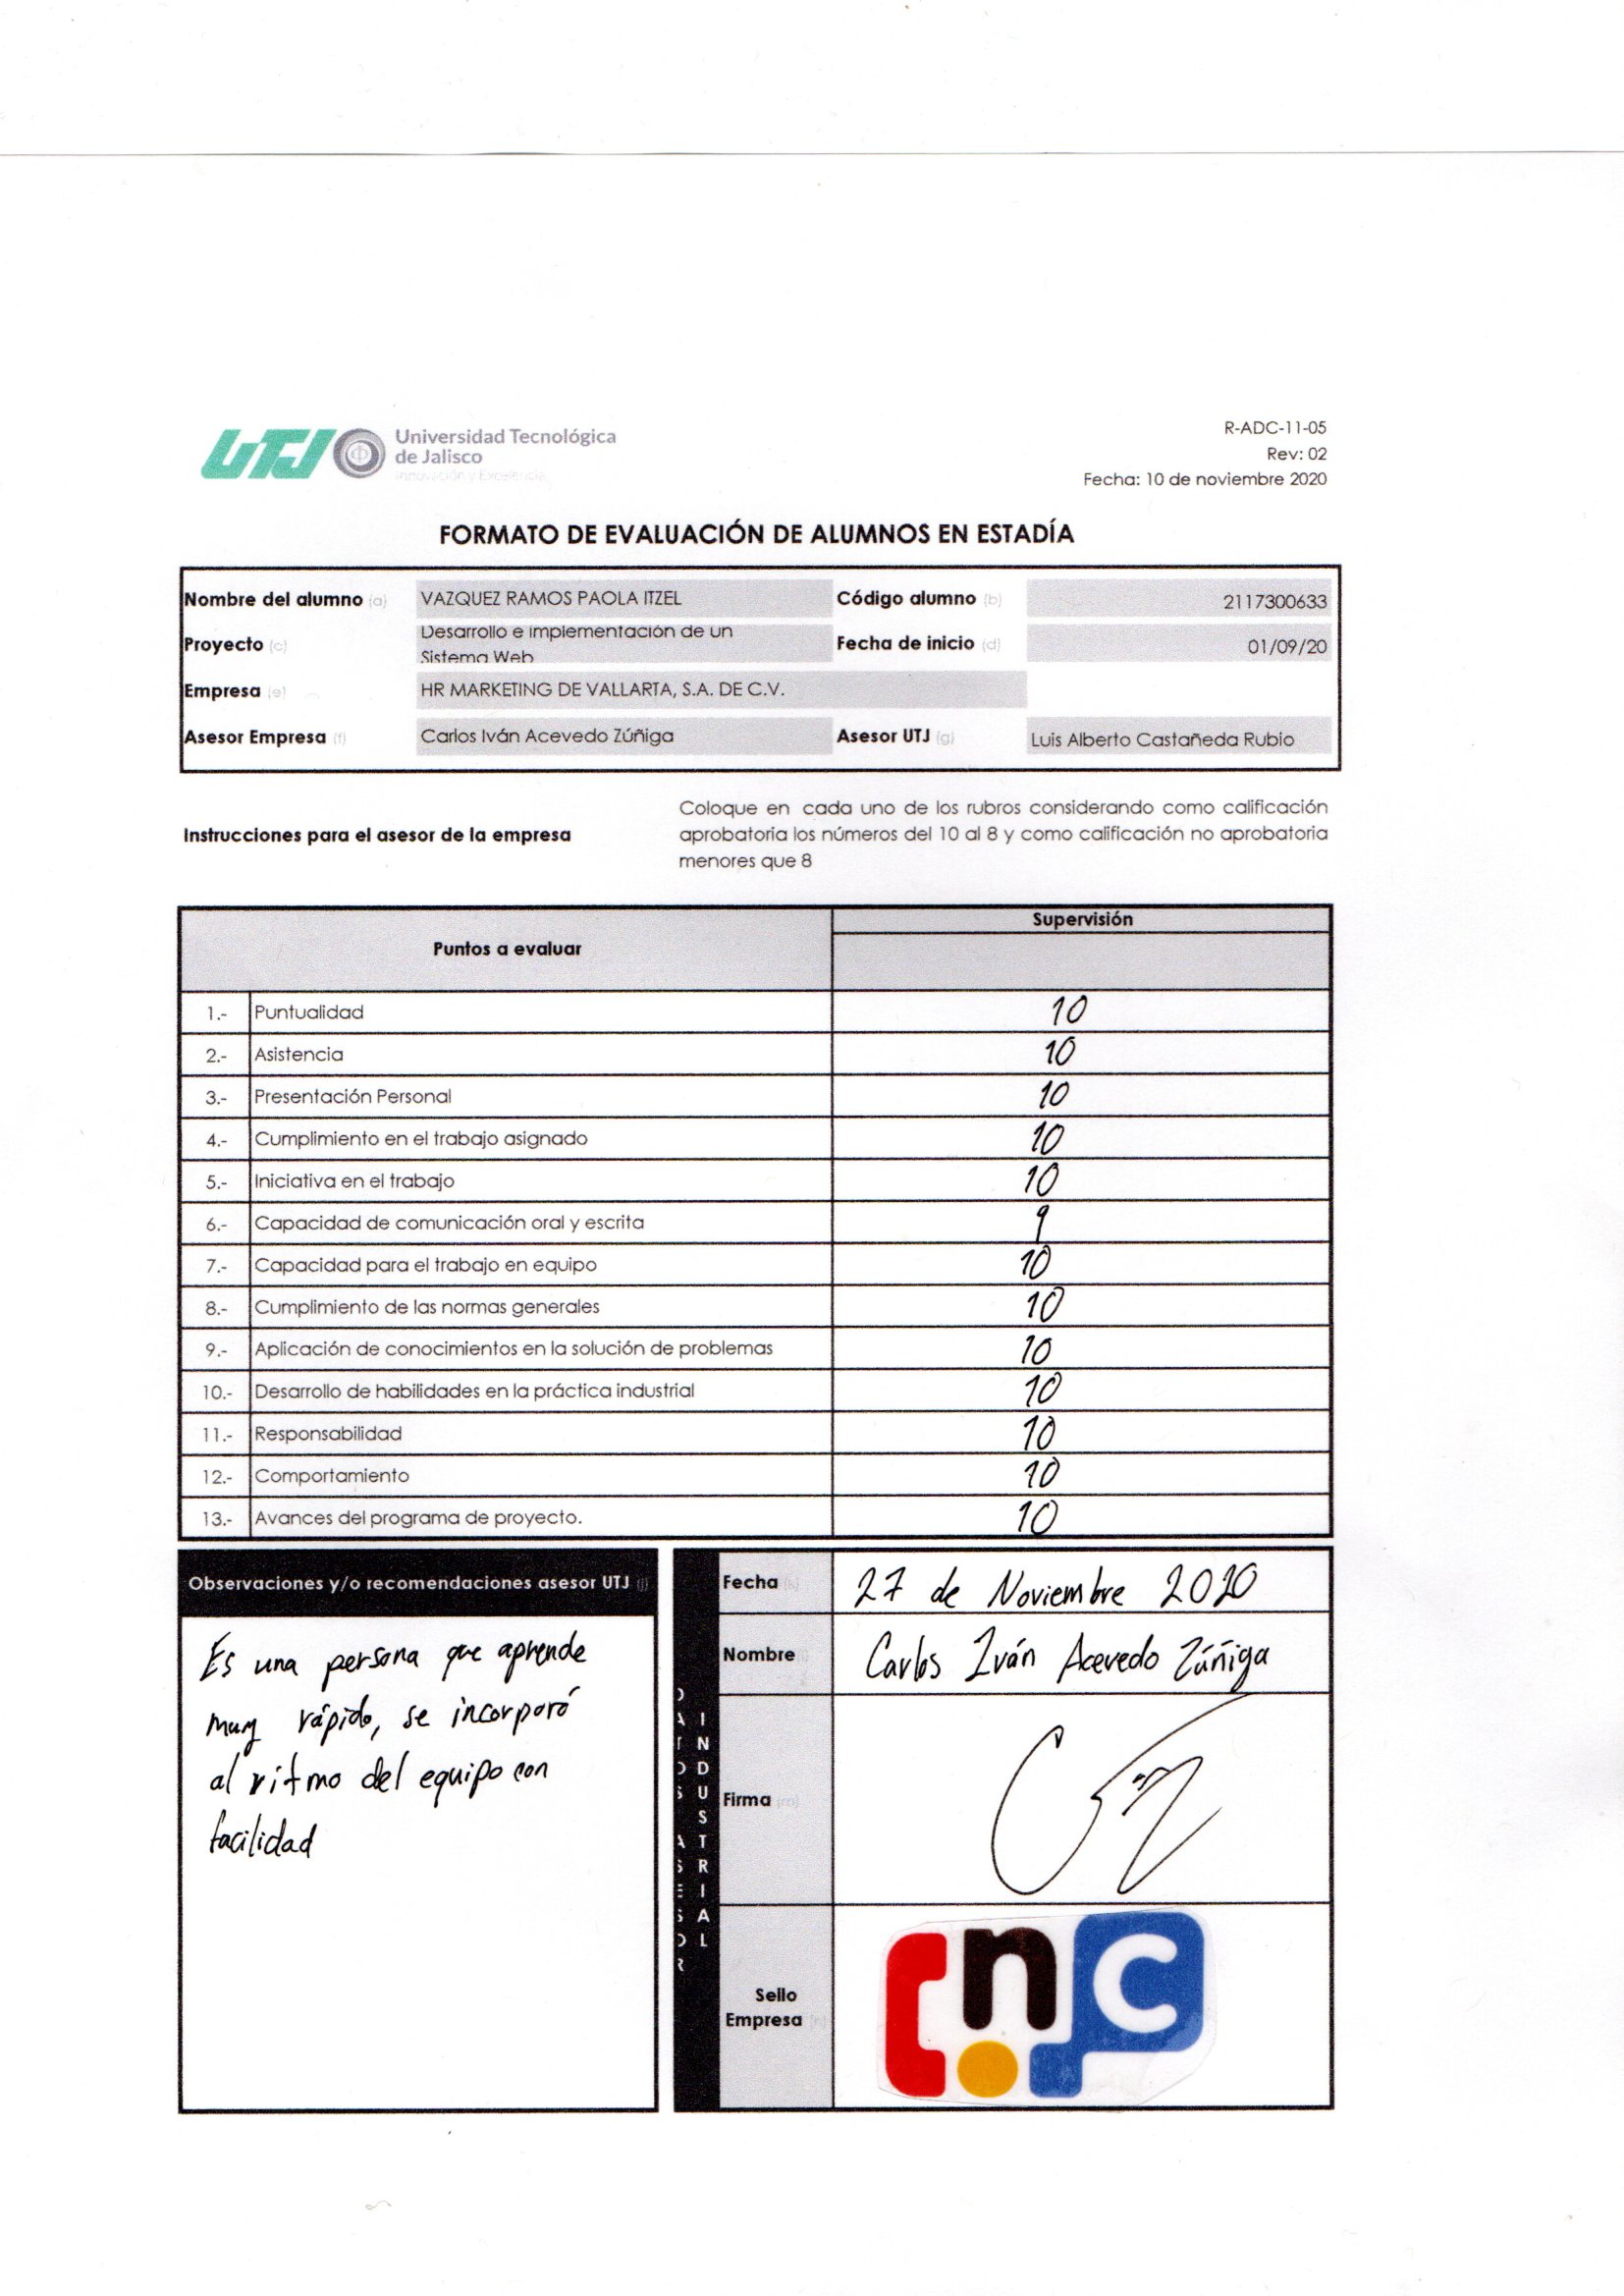 UTJ Universidad Tecnológica
de Jalisco
Innovación y Excelencia
R-ADC-11-05
Rev: 02
Fecha: 10 de noviembre 2020
FORMATO DE EVALUACIÓN DE ALUMNOS EN ESTADÍA
Nombre del alumno (a) VAZQUEZ RAMOS PAOLA ITZEL Código alumno (b) 2117300633
Proyecto (c) Desarrollo e implementación de un Sistema Web Fecha de inicio (d) 01/09/20
Empresa (e) HR MARKETING DE VALLARTA, S.A. DE C.V.
Asesor Empresa (f) Carlos Iván Acevedo Zúñiga Asesor UTJ (g) Luis Alberto Castañeda Rubio
Instrucciones para el asesor de la empresa
Coloque en cada uno de los rubros considerando como calificación
aprobatoria los números del 10 al 8 y como calificación no aprobatoria
menores que 8
Puntos a evaluar Supervisión
1.- Puntualidad 10
2.- Asistencia 10
3.- Presentación Personal 10
4.- Cumplimiento en el trabajo asignado 10
5.- Iniciativa en el trabajo 10
6.- Capacidad de comunicación oral y escrita 9
7.- Capacidad para el trabajo en equipo 10
8.- Cumplimiento de las normas generales 10
9.- Aplicación de conocimientos en la solución de problemas 10
10.- Desarrollo de habilidades en la práctica industrial 10
11.- Responsabilidad 10
12.- Comportamiento 10
13.- Avances del programa de proyecto. 10
Observaciones y/o recomendaciones asesor UTJ (j)
Es una persona que aprende
muy rápido, se incorporó
al ritmo del equipo con
facilidad
DATOS ASESOR
INDUSTRIAL
Fecha (k) 27 de Noviembre 2020
Nombre Carlos Iván Acevedo Zúñiga
Firma (m)
Sello
Empresa
nc